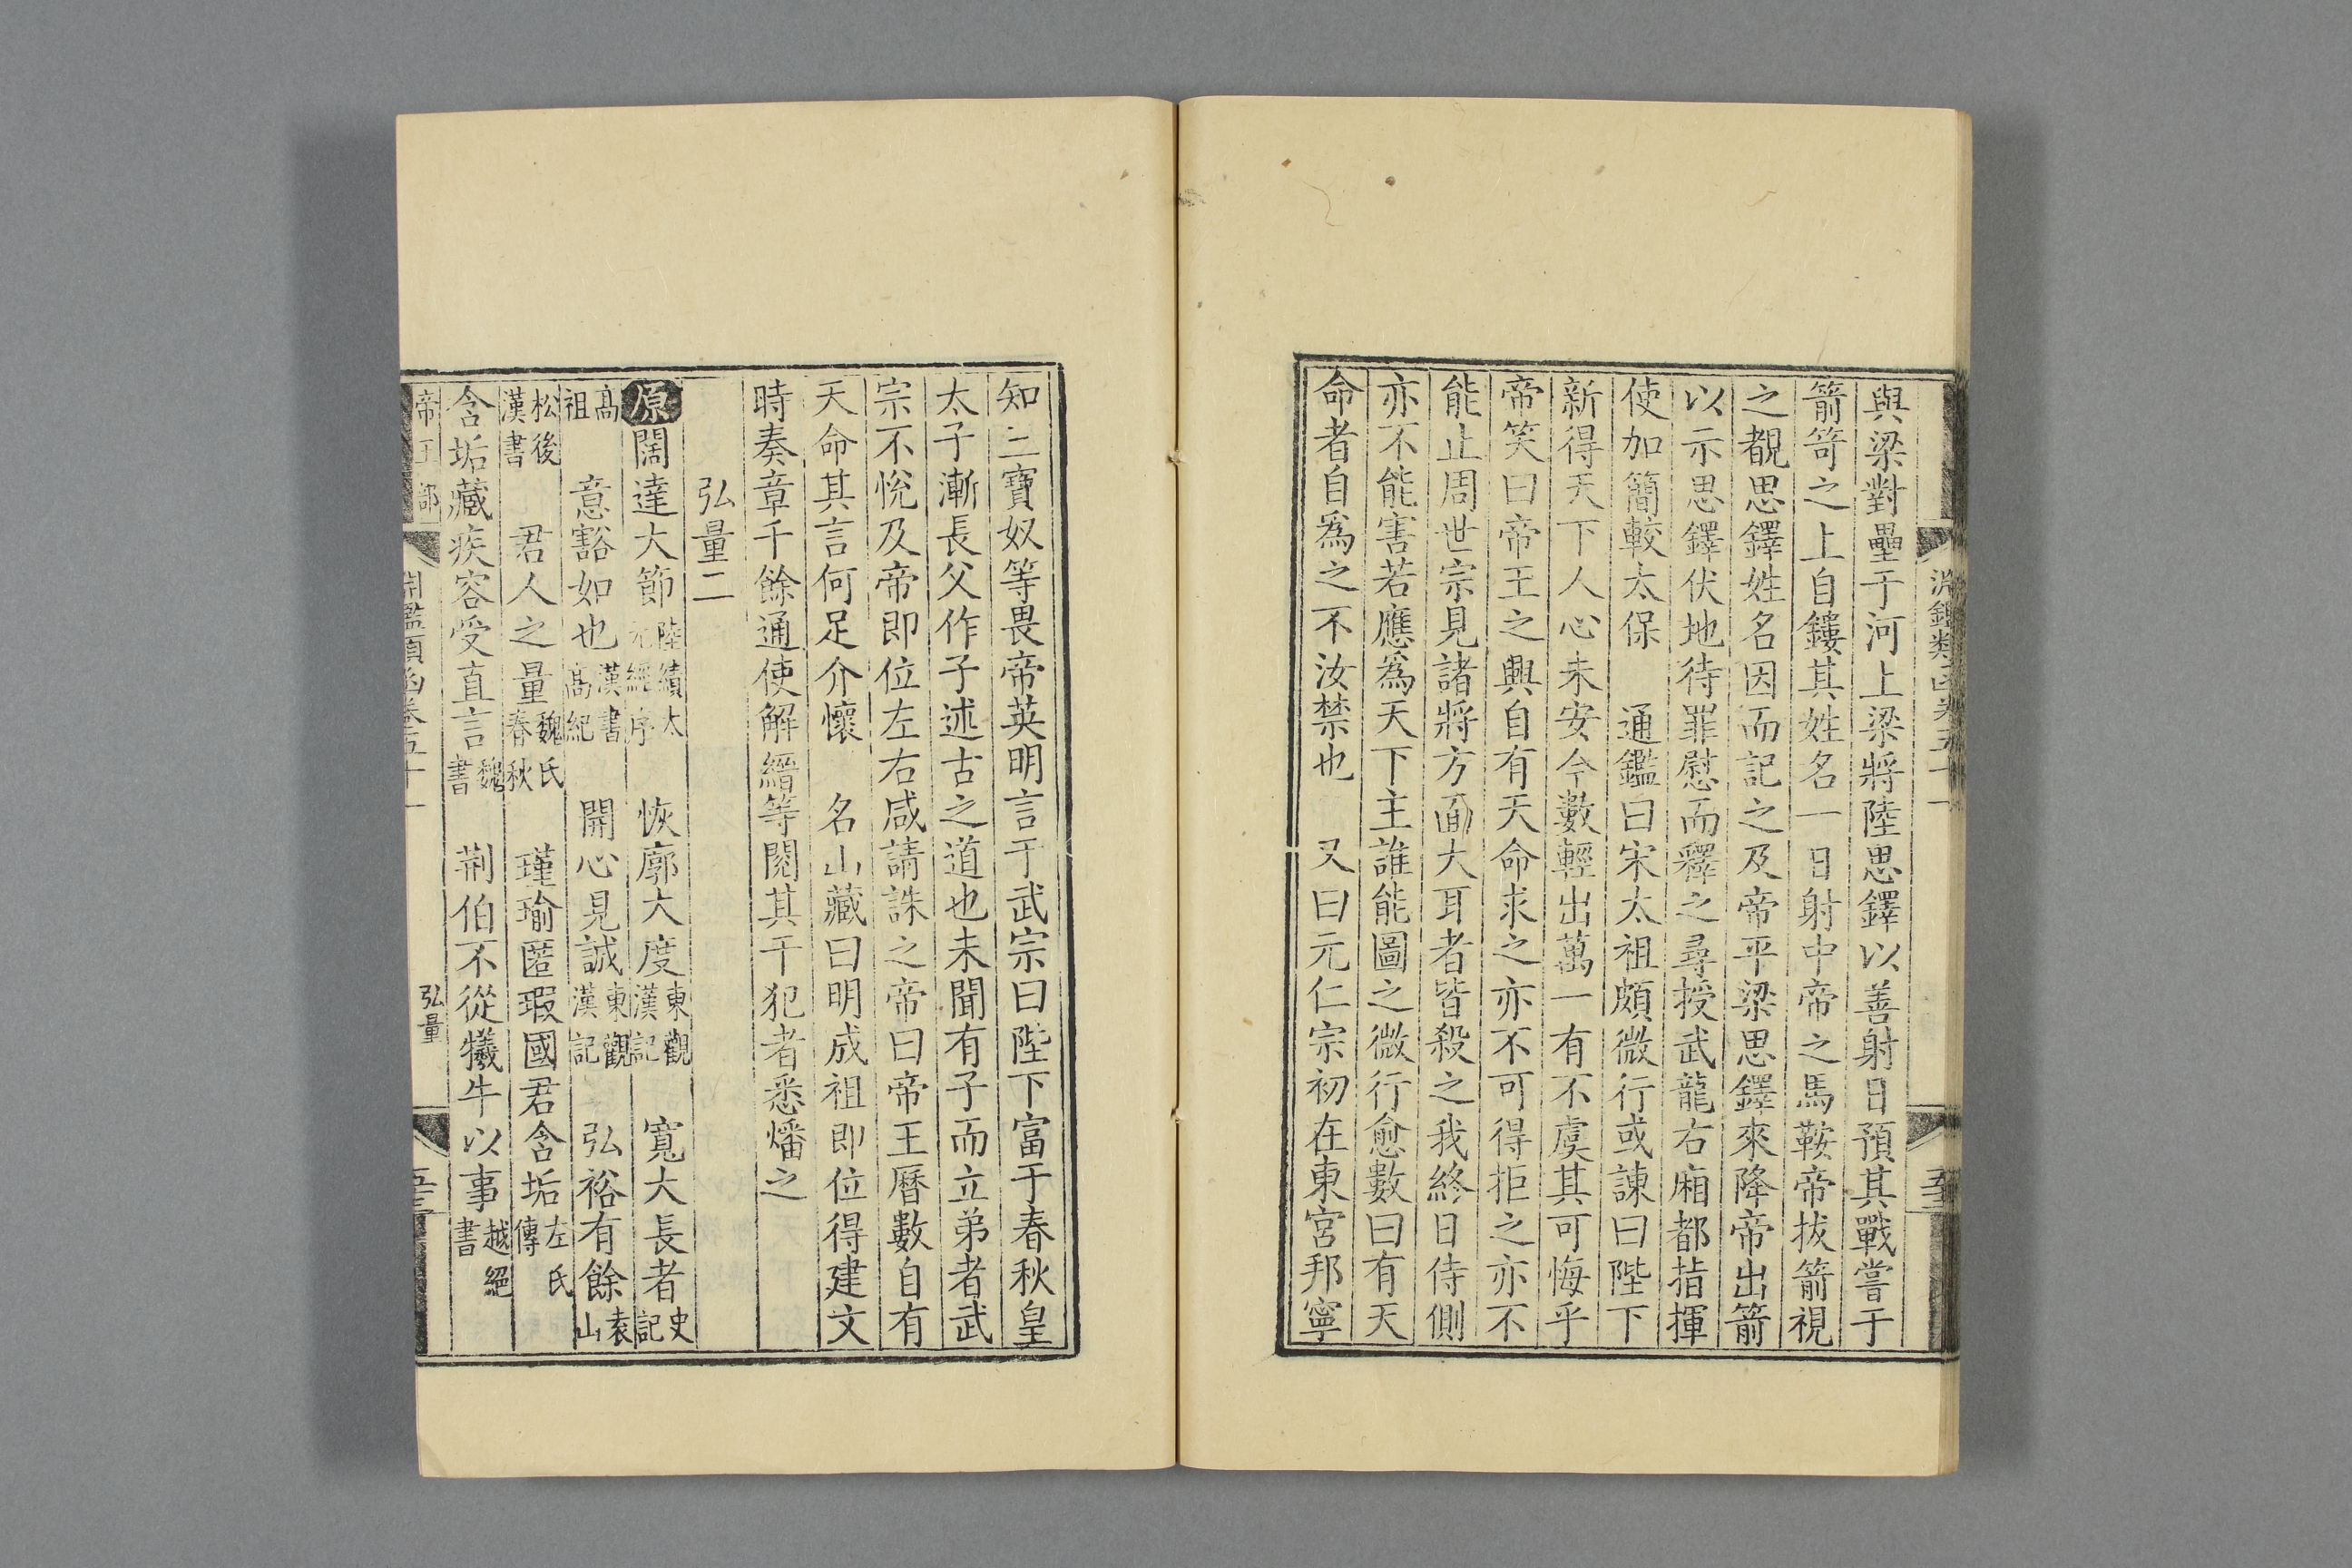 淵鑑類函卷五十一
與梁對壘于河上梁將陸思鐸以善射日預其戰嘗于
箭笴之上自鏤其姓名一日射中帝之馬鞍帝拔箭視
之覩思鐸姓名因而記之及帝平梁思鐸來降帝出箭
以示思鐸伏地待罪慰而釋之尋授武龍右廂都指揮
使加簡較太保　通鑑曰宋太祖頗微行或諫曰陛下
新得天下人心未安今數輕出萬一有不虞其可悔乎
帝笑曰帝王之興自有天命求之亦不可得拒之亦不
能止周世宗見諸將方面大耳者皆殺之我終日侍側
亦不能害若應爲天下主誰能圖之微行愈數曰有天
命者自爲之不汝禁也　又曰元仁宗初在東宮邦寧
知三寶奴等畏帝英明言于武宗曰陛下富于春秋皇
太子漸長父作子述古之道也未聞有子而立弟者武
宗不悅及帝即位左右咸請誅之帝曰帝王曆數自有
天命其言何足介懷　名山藏曰明成祖即位得建文
時奏章千餘通使解縉等閱其干犯者悉燔之
弘量二
原闊達大節陸績太元經序　恢廓大度東觀漢記　寬大長者史記
高祖　意豁如也漢書高紀　開心見誠東觀漢記　弘裕有餘袁山
松後漢書　君人之量魏氏春秋　瑾瑜匿瑕國君含垢左氏傳
含垢藏疾容受直言魏書　荆伯不從犧牛以事越絕書
帝王部　淵鑑類函卷五十一　弘量